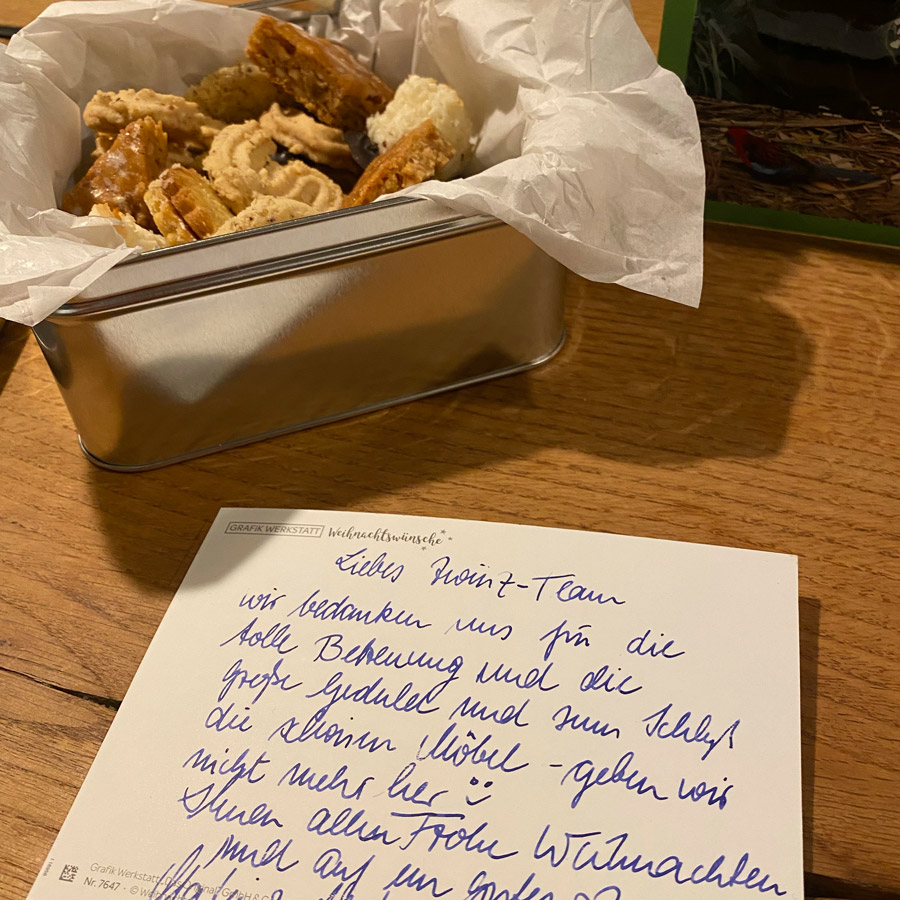 GRAFIK WERKSTATT Weihnachtswünsche
Liebes Zwinz-Team
wir bedanken uns für die
tolle Betreuung und die
große Geduld und zum Schluß
die schönen Möbel - geben wir
nicht mehr her
Ihnen allen Frohe Weihnachten
und auf ein gutes
Grafik Werkstatt
Nr. 7647